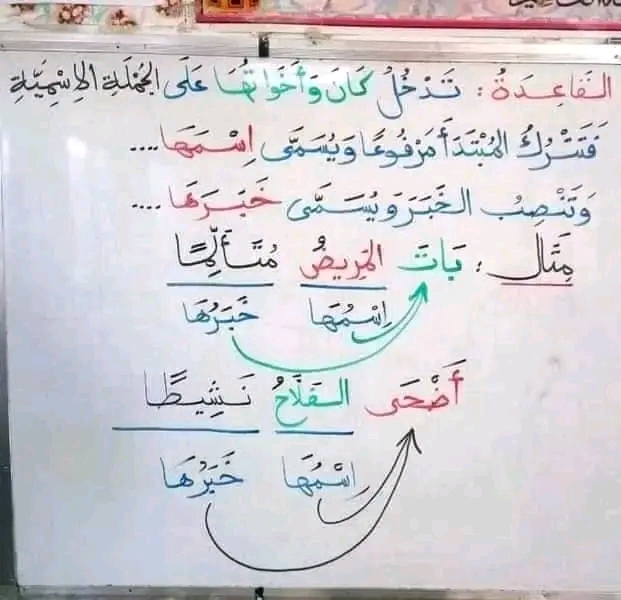 القَاعِدَةُ : تَدْخُلُ كَانَ وَأَخَوَاتُهَا عَلَى الجُمْلَةِ الاِسْمِيَّةِ
فَتَتْرُكُ المُبْتَدَأَ مَرْفُوعًا وَيُسَمَّى اِسْمَهَا ....
وَتَنْصِبُ الخَبَرَ وَيُسَمَّى خَبَرَهَا ....
مِثَال : بَاتَ المَرِيضُ مُتَأَلِّمًا
اِسْمُهَا خَبَرُهَا
أَضْحَى الفَلَّاحُ نَشِيطًا
اِسْمُهَا خَبَرُهَا